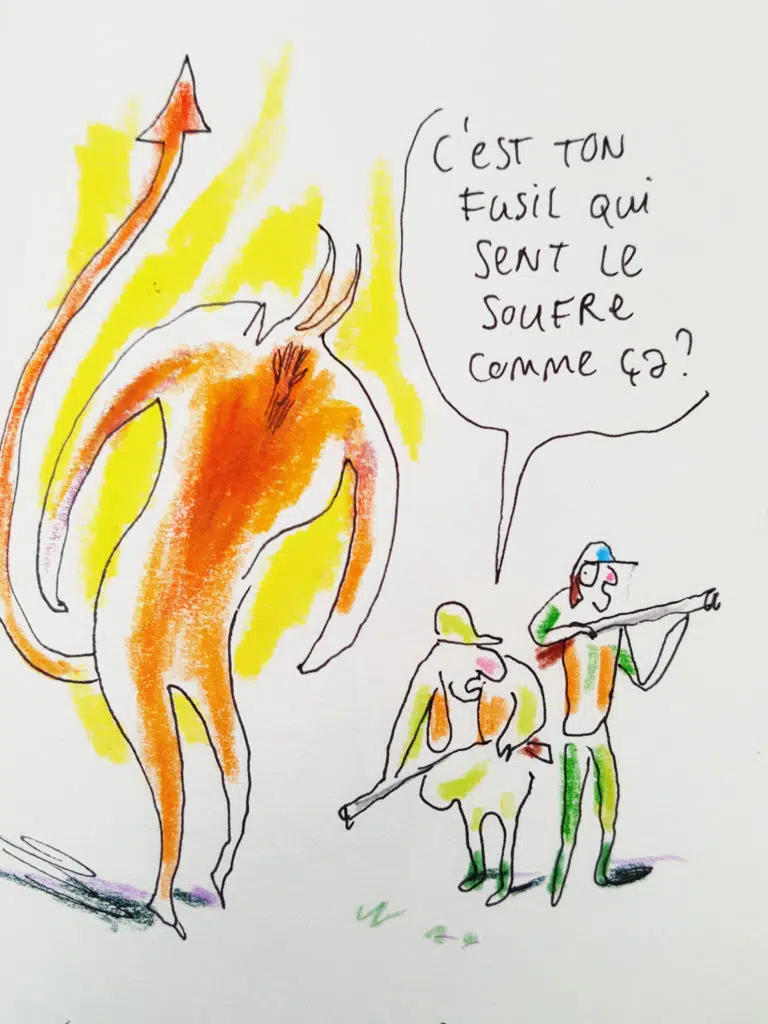 C'EST TON
FUSIL QUI
SENT LE
SOUFRE
COMME ÇA?